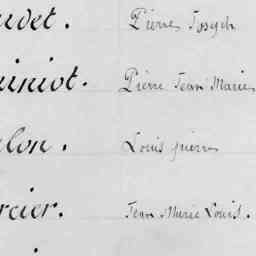 udet. Pierre Joseph
uiniot. Pierre Jean Marie
lon. Louis pierre
rcier. Jean Marie Louis.